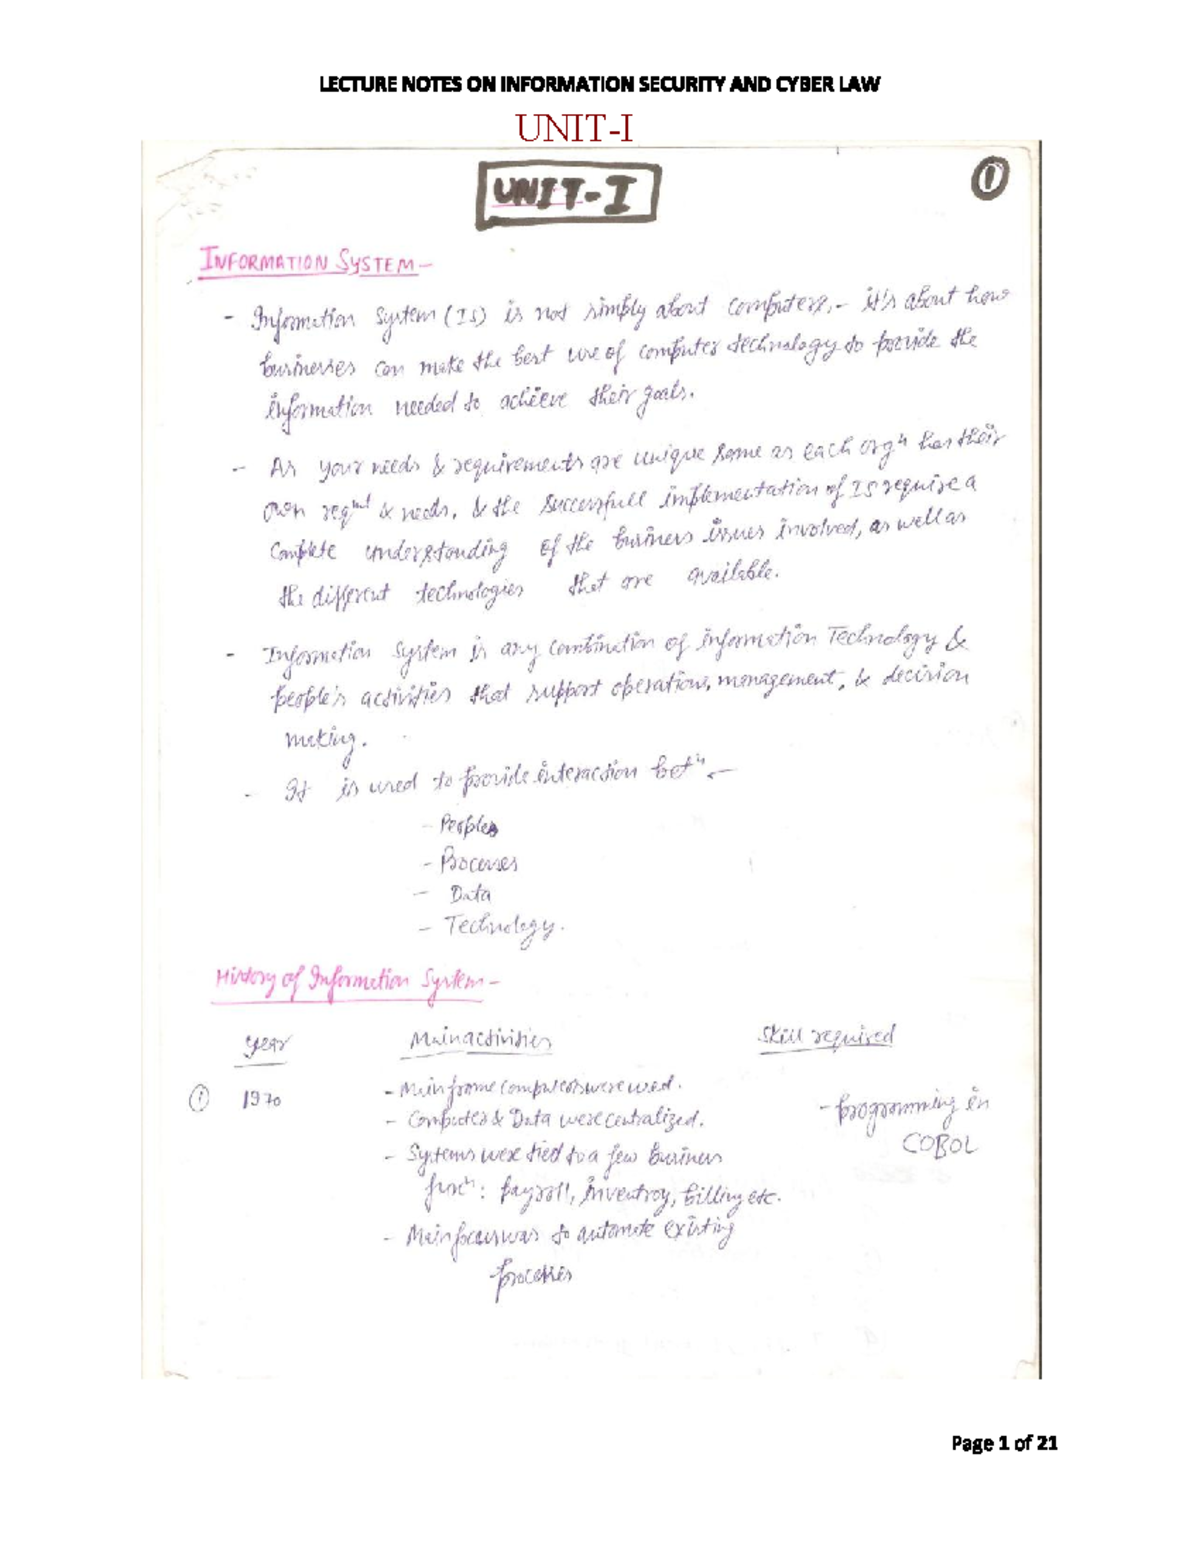 LECTURE NOTES ON INFORMATION SECURITY AND CYBER LAW
UNIT-I
UNIT-I
1
INFORMATION SYSTEM-
- Information System (IS) is not simply about computers,- it's about how
businesses can make the best use of computer technology to provide the
information needed to achieve their goals.
- As your needs & requirements are unique same as each orgn has their
own reqmt & needs, & the successfull implementation of IS require a
complete understanding of the business issues involved, as well as
the different technologies that are available.
- Information System is any combination of information Technology &
people's activities that support operations, management, & decision
making.
- It is used to provide interaction betn -
- Peoples
- Processes
- Data
- Technology.
History of Information System-
Year Main activities Skill required
① 1970 - Mainframe computers were used. - programming in
- Computer & Data were centralized. COBOL
- Systems were tied to a few business
funcn: payroll, inventroy, billing etc.
- Main focus was to automate existing
processes
Page 1 of 21